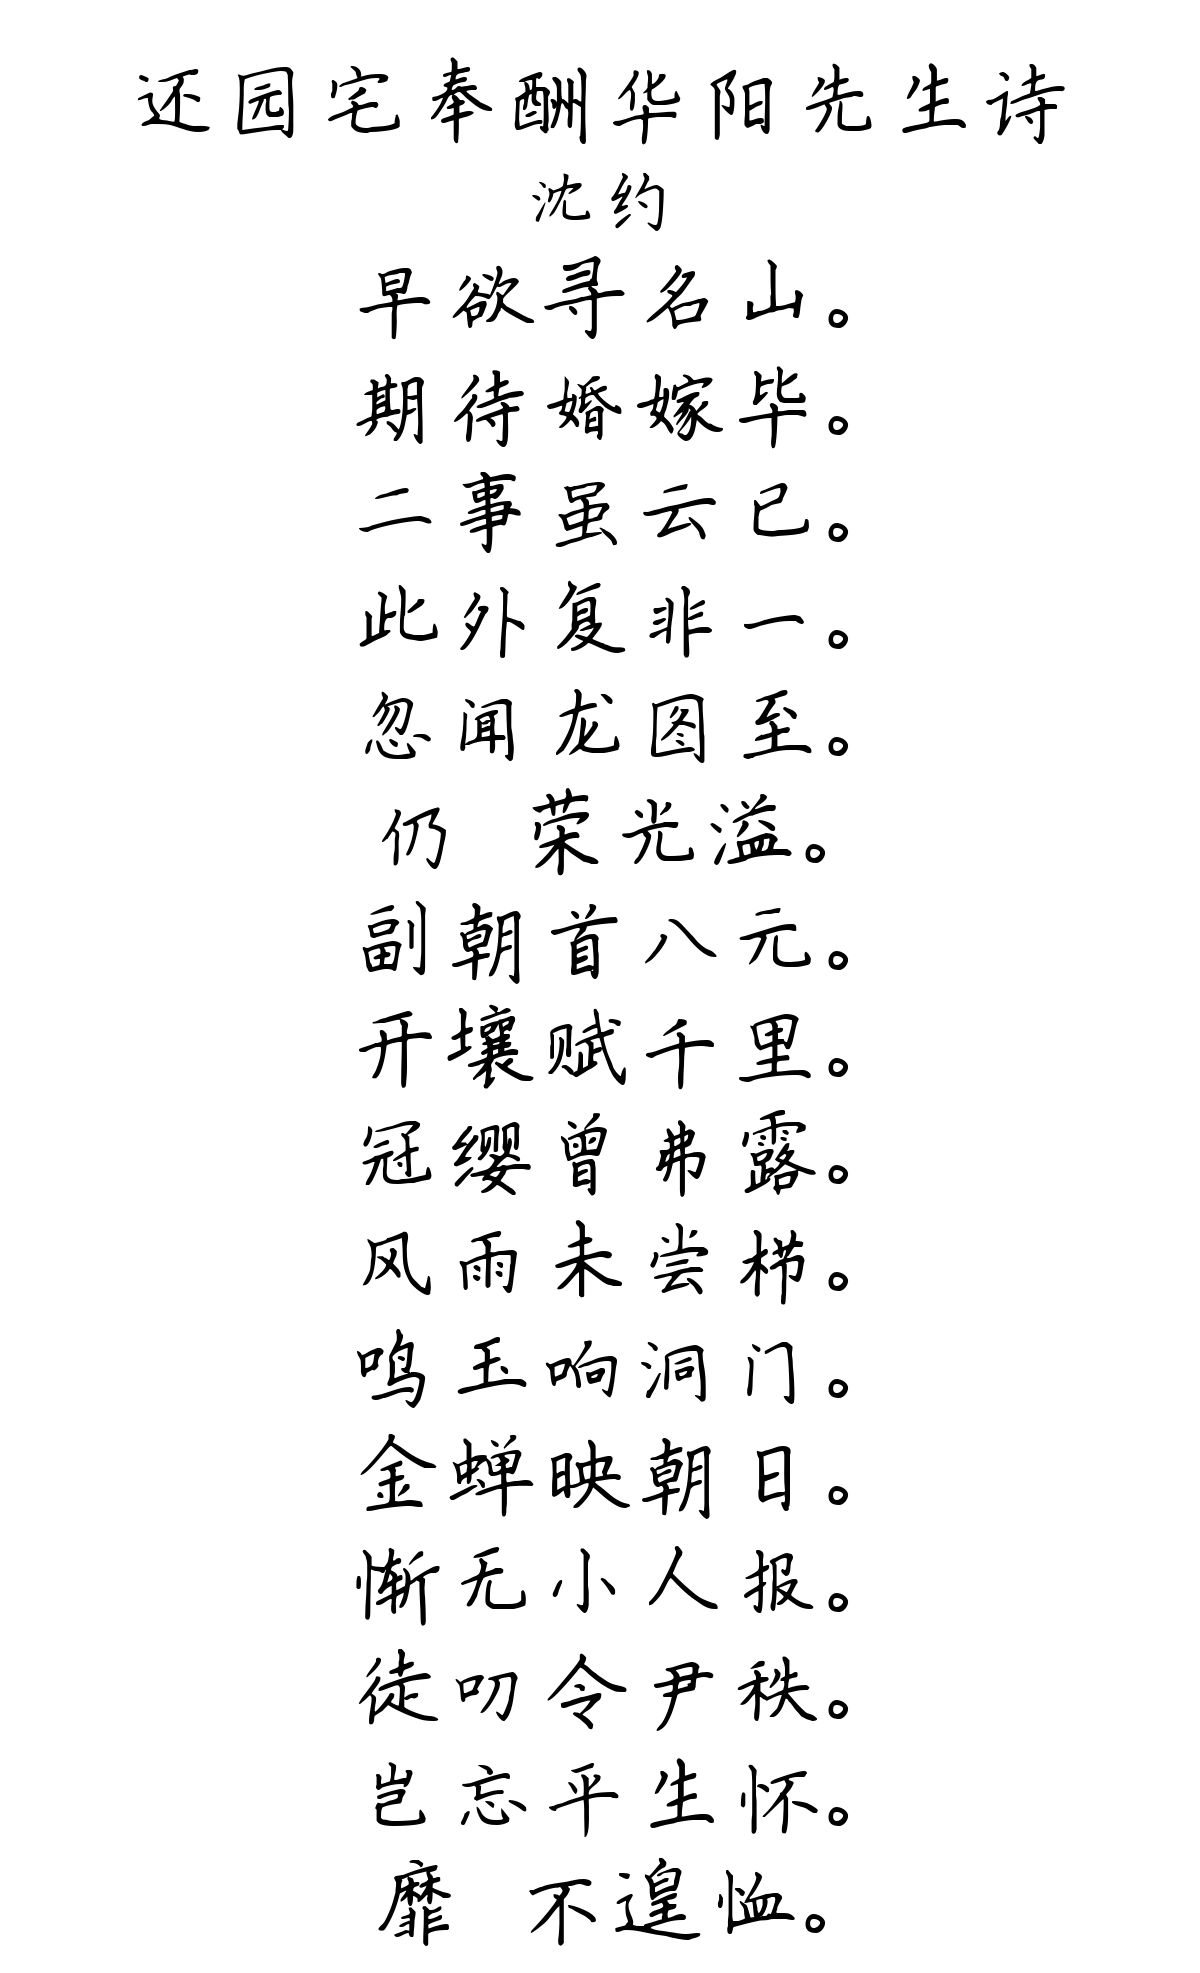 还园宅奉酬华阳先生诗
沈约
早欲寻名山。
期待婚嫁毕。
二事虽云已。
此外复非一。
忽闻龙图至。
仍 荣光溢。
副朝首八元。
开壤赋千里。
冠缨曾弗露。
风雨未尝栉。
鸣玉响洞门。
金蝉映朝日。
惭无小人报。
徒叨令尹秩。
岂忘平生怀。
靡 不遑恤。